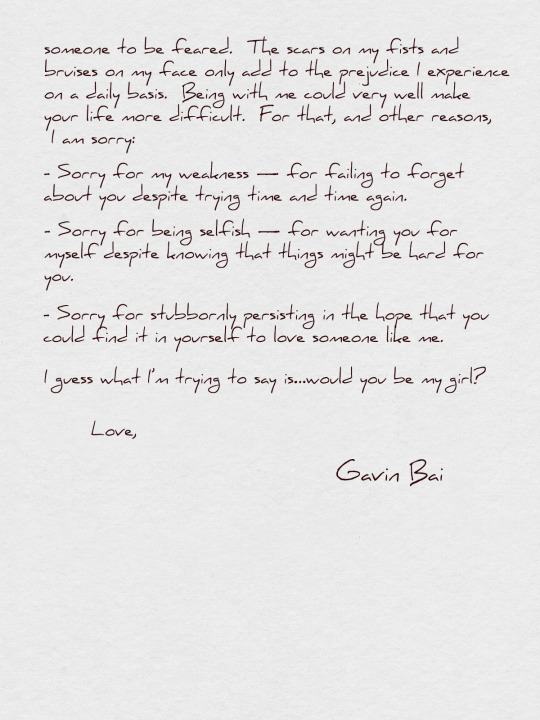 someone to be feared.  The scars on my fists and
bruises on my face only add to the prejudice I experience
on a daily basis.  Being with me could very well make
your life more difficult.  For that, and other reasons,
I am sorry:
- Sorry for my weakness — for failing to forget
about you despite trying time and time again.
- Sorry for being selfish — for wanting you for
myself despite knowing that things might be hard for
you.
- Sorry for stubbornly persisting in the hope that you
could find it in yourself to love someone like me.
I guess what I'm trying to say is...would you be my girl?
Love,
Gavin Bai